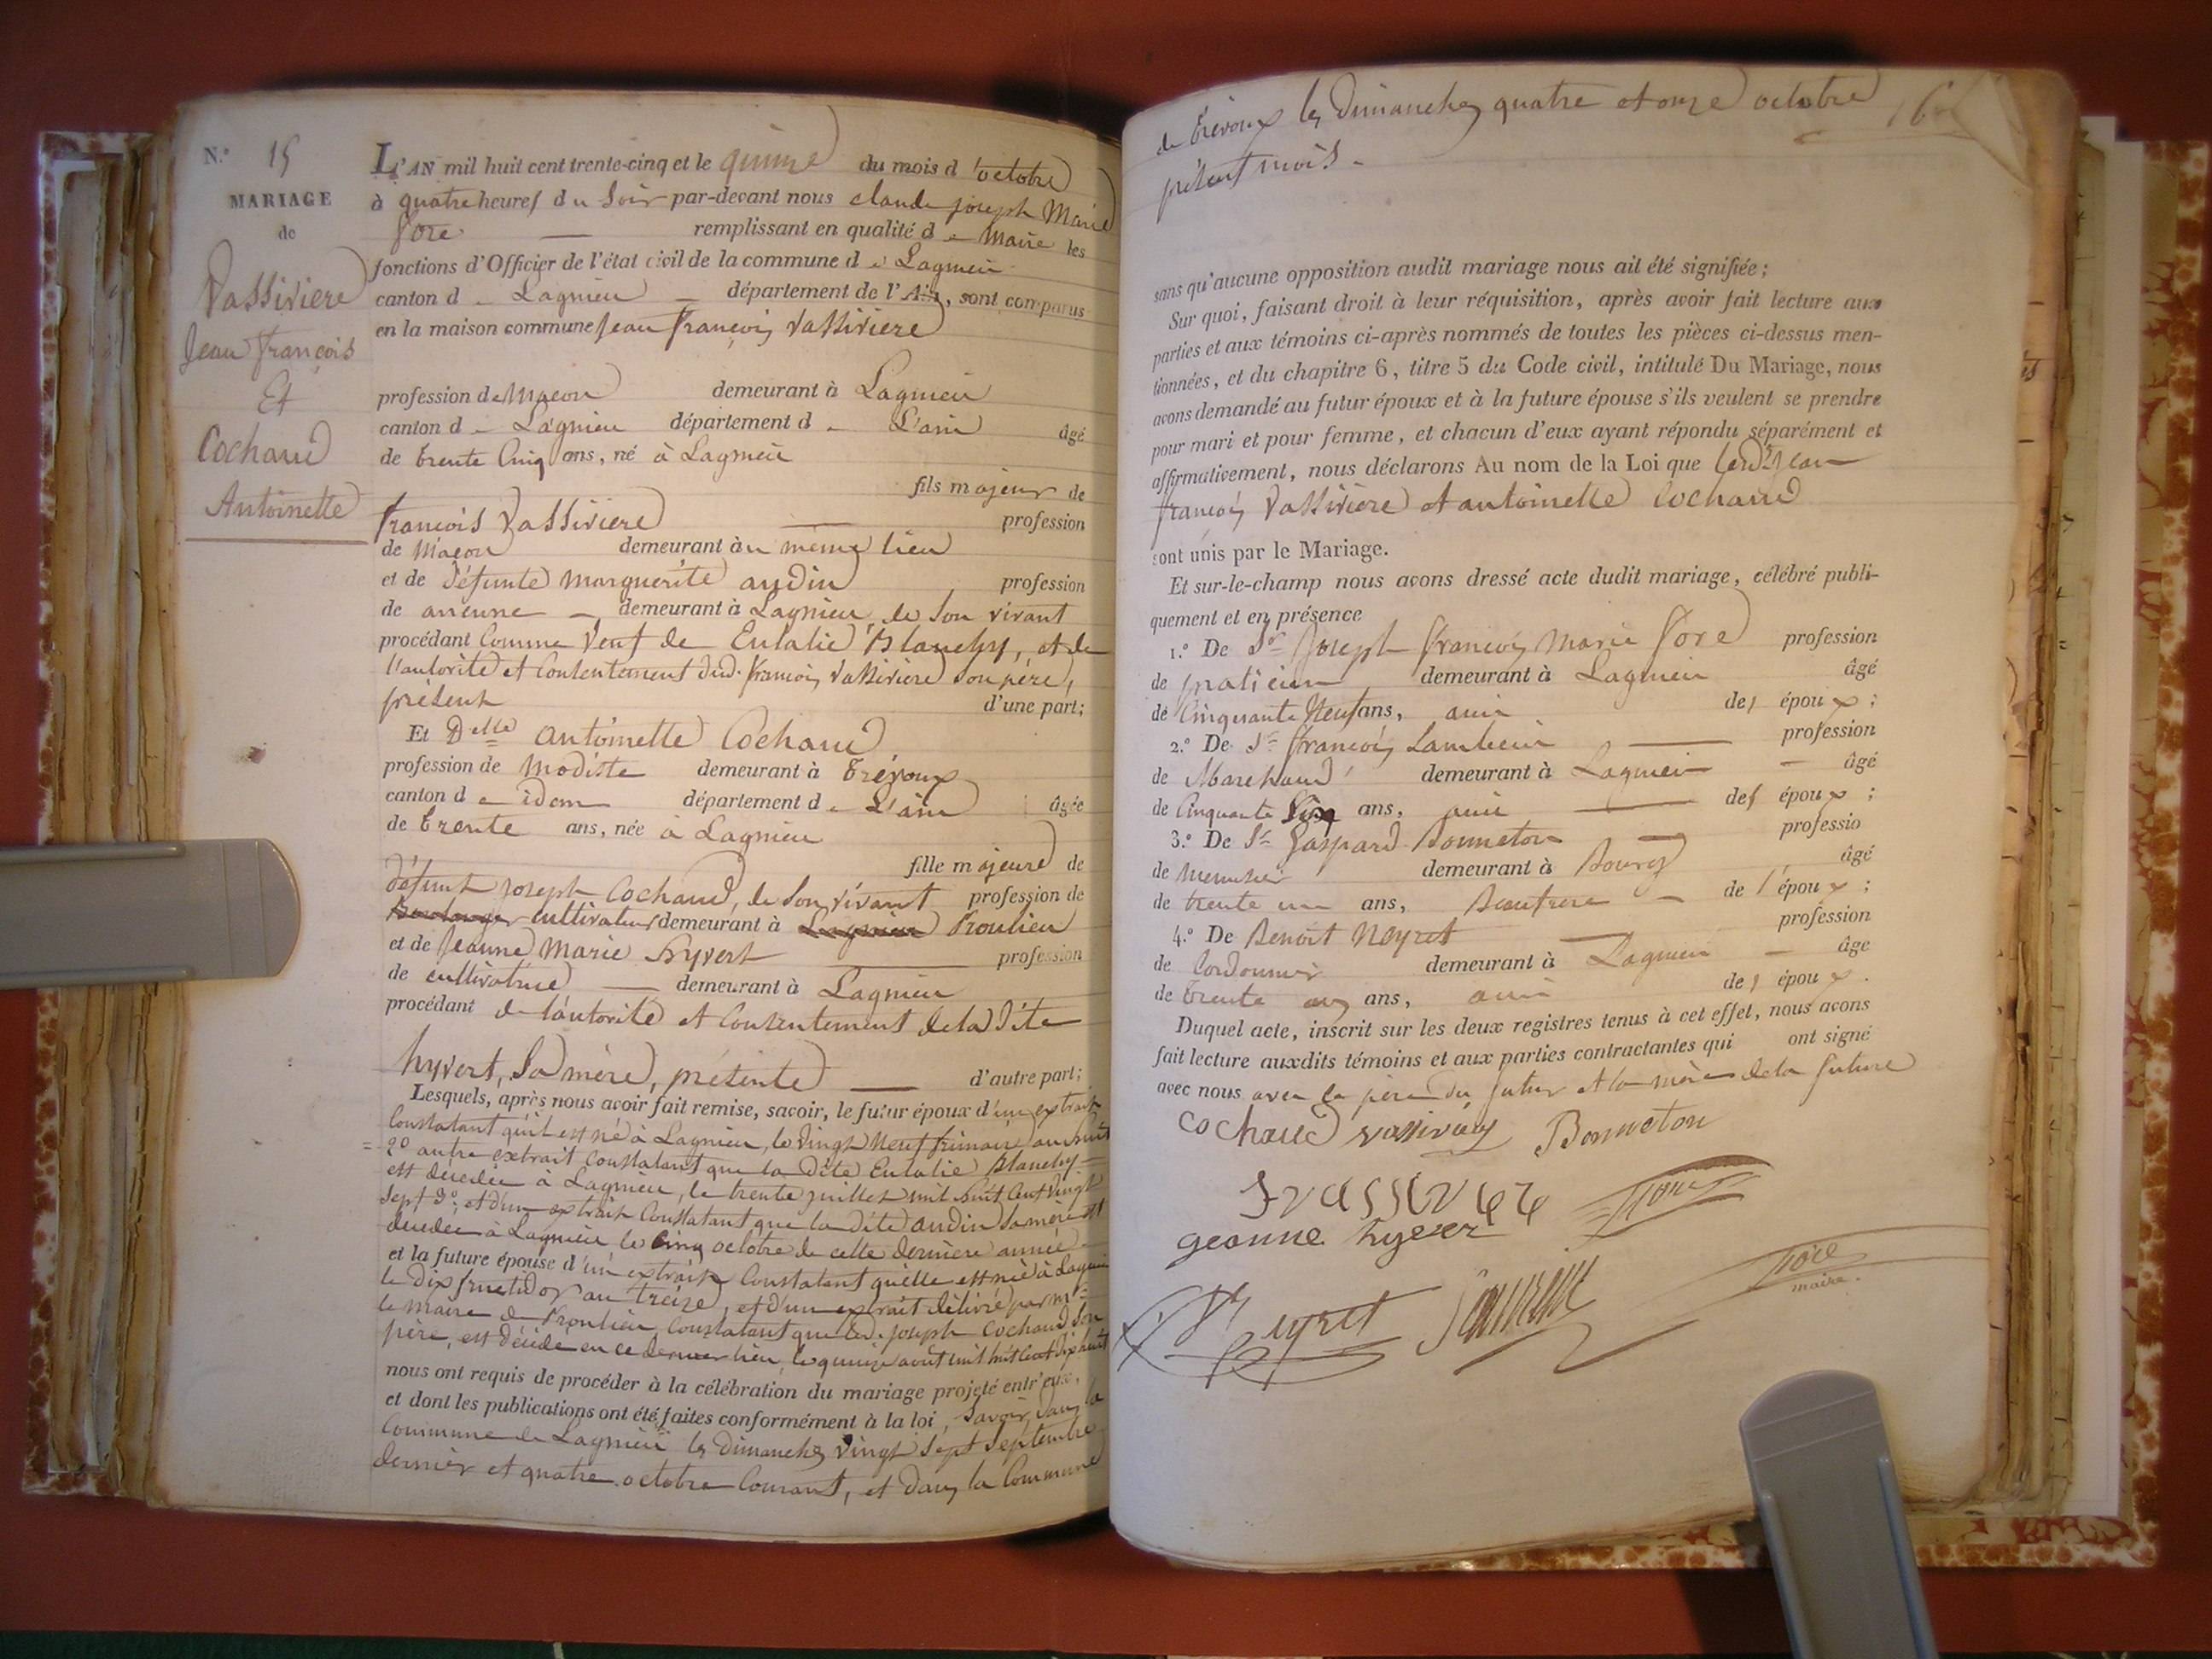 N.° 15
MARIAGE
de
Vassiviere
Jean françois
Et
Cochaud
Antoinette
L'AN mil huit cent trente-cinq et le quinze du mois d'octobre
à quatre heures du soir par-devant nous claude joseph Marie
fore remplissant en qualité de maire les
fonctions d'Officier de l'état civil de la commune de Lagnieu
canton de Lagnieu département de l'Ain, sont comparus
en la maison commune jean françois Vassiviere
profession de Maçon demeurant à Lagnieu
canton de Lagnieu département de L'ain âgé
de trente Cinq ans, né à Lagnieu
fils majeur de
françois Vassiviere profession
de Maçon demeurant au meme lieu
et de défunte marguerite audin profession
de aucune demeurant à Lagnieu, de son vivant
procédant Comme Veuf de Eulalie Blanchy, et de
l'autorité et Consentement dud. françois Vassiviere son père,
présent d'une part;
Et Delle antoinette Cochaud
profession de modiste demeurant à trévoux
canton de idem département de L'ain âgée
de trente ans, née à Lagnieu
fille majeure de
défunt joseph Cochaud, de son vivant profession de
Boulanger cultivateur demeurant à Lagnieu Proulieu
et de jeanne Marie hyvert profession
de cultivatrice demeurant à Lagnieu
procédant de l'autorité et Consentement de la dite
hyvert, sa mère, présente d'autre part;
Lesquels, après nous avoir fait remise, savoir, le futur époux d'un extrait
Constatant qu'il est né à Lagnieu, le vingt Neuf frimaire an huit
= 2° autre extrait Constatant que la dite Eulalie Blanchy
est décédée à Lagnieu, le trente juillet mil huit Cent vingt
sept 3°; et d'un extrait Constatant que la dite audin sa mère est
décédée à Lagnieu le Cinq octobre de cette dernière année
et la future épouse d'un extrait Constatant qu'elle est née à Lagnieu
le dix fructidor an treize, et d'un extrait délivré par mr
le maire de Proulieu Constatant que led. joseph Cochaud son
père, est décédé en ce dernier lieu, le quinze août mil huit Cent dix huit
nous ont requis de procéder à la célébration du mariage projeté entr'eux,
et dont les publications ont été faites conformément à la loi, savoir, dans la
Commune de Lagnieu les dimanches vingt sept septembre
dernier et quatre octobre Courant, et dans la Commune
de trévoux les dimanches quatre et onze octobre
présent mois.
sans qu'aucune opposition audit mariage nous ait été signifiée;
Sur quoi, faisant droit à leur réquisition, après avoir fait lecture aux
parties et aux témoins ci-après nommés de toutes les pièces ci-dessus men-
tionnées, et du chapitre 6, titre 5 du Code civil, intitulé Du Mariage, nous
avons demandé au futur époux et à la future épouse s'ils veulent se prendre
pour mari et pour femme, et chacun d'eux ayant répondu séparément et
affirmativement, nous déclarons Au nom de la Loi que lesd. jean
françois Vassiviere et antoinette Cochaud
sont unis par le Mariage.
Et sur-le-champ nous avons dressé acte dudit mariage, célébré publi-
quement et en présence
1.° De Sr joseph françois marie fore profession
de praticien demeurant à Lagnieu âgé
de Cinquante Neuf ans, ami des époux;
2.° De Sr françois profession
de Marchand demeurant à Lagnieu âgé
de Cinquante ans, ami des époux;
3.° De Sr Gaspard Bonneton professio
de menuisier demeurant à Bourg âgé
de trente un ans, Beaufrere de l'époux;
4.° De Benoit Neyret profession
de Cordonnier demeurant à Lagnieu âge
de trente ans, ami des époux.
Duquel acte, inscrit sur les deux registres tenus à cet effet, nous avons
fait lecture auxdits témoins et aux parties contractantes qui ont signé
avec nous avec le père du futur et la mère de la future
cochaud vassiviere Bonneton
geanne hyver fore
Neyret fore
maire.